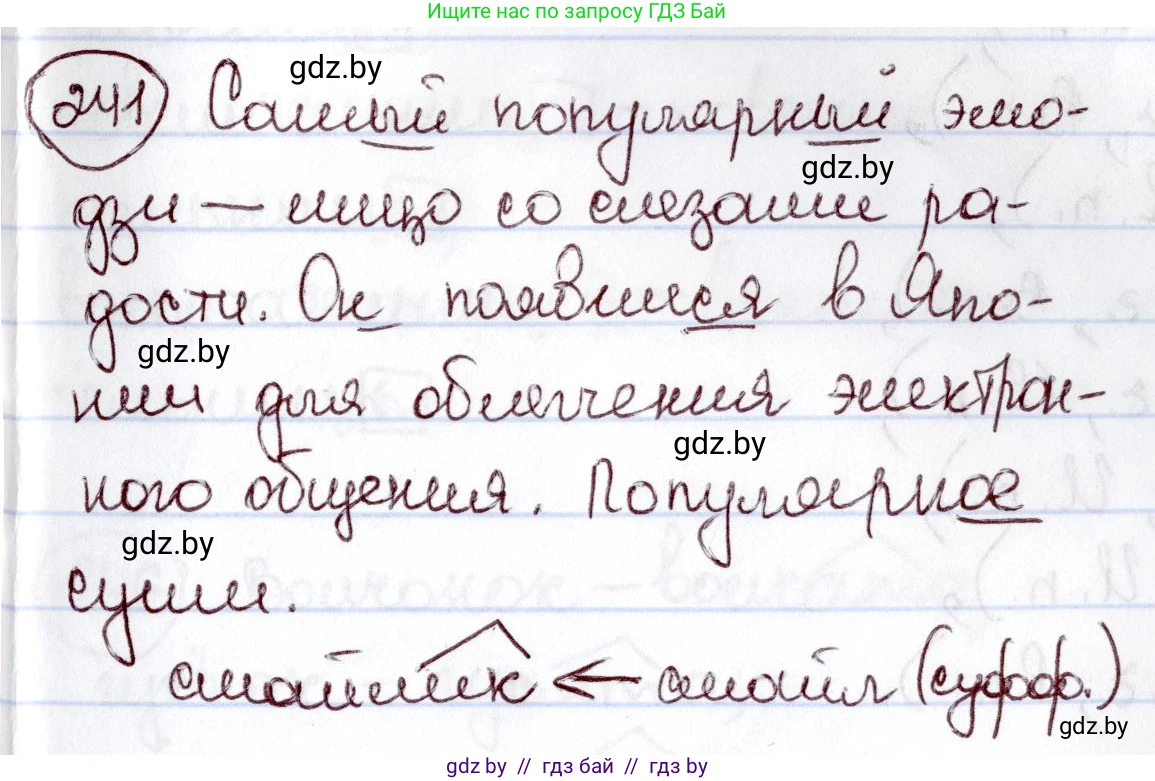 Ищите нас по запросу ГДЗ Бай
gdz.by
241 Самый популярный эмо-
gdz.by
дзи — лицо со слезами ра-
дости. Он появился в Япо-
gdz.by
нии для облегчения электрон-
gdz.by
ного общения. Популярное
gdz.by
суши.
смайлик ← смайл (суфф.)
gdz.by
gdz.by // гдз бай // гдз by